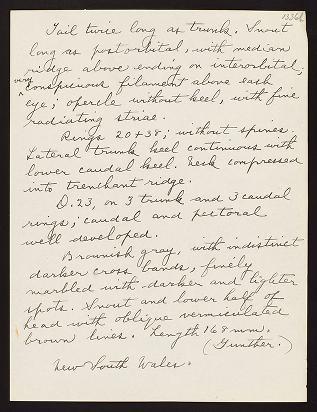 1336d
Tail twice long as trunk. Snout
long as postorbital, with median
ridge above ending on interorbital;
very
conspicuous filament above each
eye; opercle without keel, with fine
radiating striae.
Rings 20+38; without spines.
Lateral trunk keel continuous with
lower caudal keel. Neck compressed
into trenchant ridge.
D. 23, on 3 trunk and 3 caudal
rings; caudal and pectoral
well developed.
Brownish gray, with indistinct
darker cross bands, finely
marbled with darker and lighter
spots. Snout and lower half of
head with oblique vermiculated
brown lines. Length 168 mm.
(Gunther.)
New South Wales.